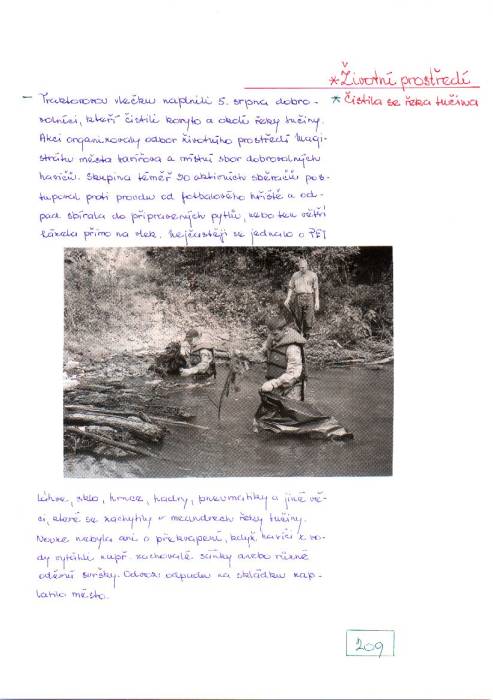 * Životní prostředí
* Čistila se řeka Lučina
– Traktorovou vlečku naplnili 5. srpna dobro-
volníci, kteří čistili koryto a okolí řeky Lučiny.
Akci organizovaly odbor životního prostředí Magi-
strátu města Havířova a místní sbor dobrovolných
hasičů. Skupina téměř 20 aktivních sběračů pos-
tupoval proti proudu od fotbalového hřiště a od-
pad sbírala do připravených pytlů, nebo ten větší
házela přímo na vlek. Nejčastěji se jednalo o PET
láhve, sklo, hrnce, hadry, pneumatiky a jiné vě-
ci, které se zachytily v meandrech řeky Lučiny.
Nouze nebyla ani o překvapení, když hasiči z vo-
dy vytáhli např. zachovalé sáňky anebo různé
oděvní svršky. Odvoz odpadu na skládku zap-
latilo město.
209